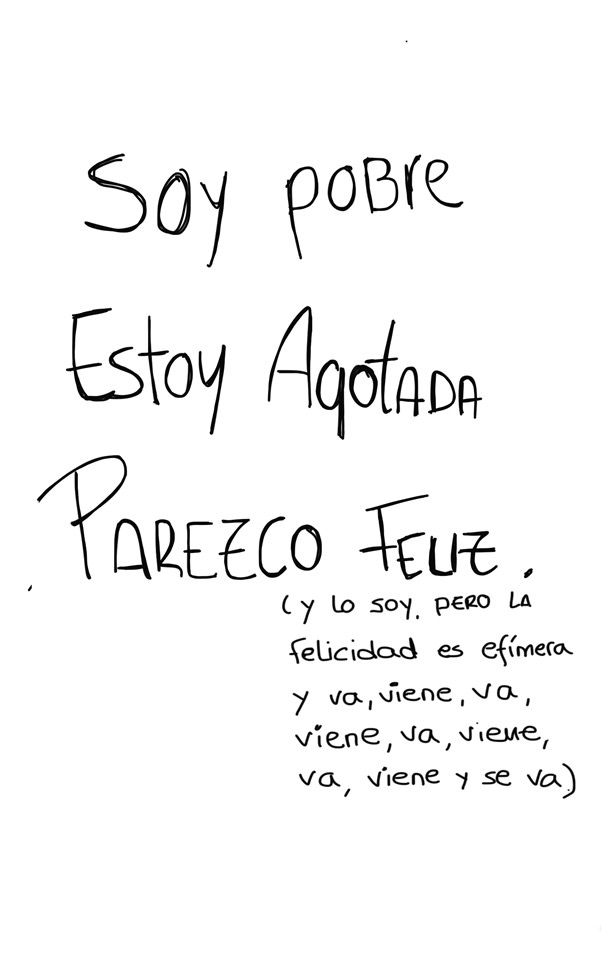 Soy poBre
Estoy AgotADA
PAREZCO FELIZ.
(y lo soy, PERO LA
felicidad es efímera
y va, viene, va,
viene, va, viene,
va, viene y se va)